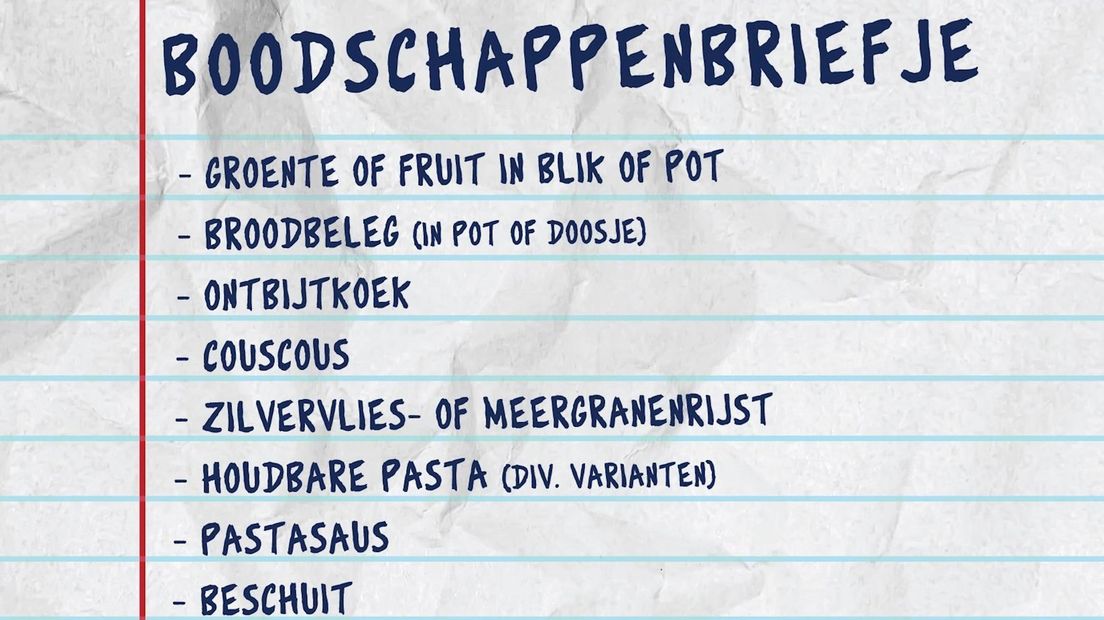 BOODSCHAPPENBRIEFJE
- GROENTE OF FRUIT IN BLIK OF POT
- BROODBELEG (IN POT OF DOOSJE)
- ONTBIJTKOEK
- COUSCOUS
- ZILVERVLIES- OF MEERGRANENRIJST
- HOUDBARE PASTA (DIV. VARIANTEN)
- PASTASAUS
- BESCHUIT